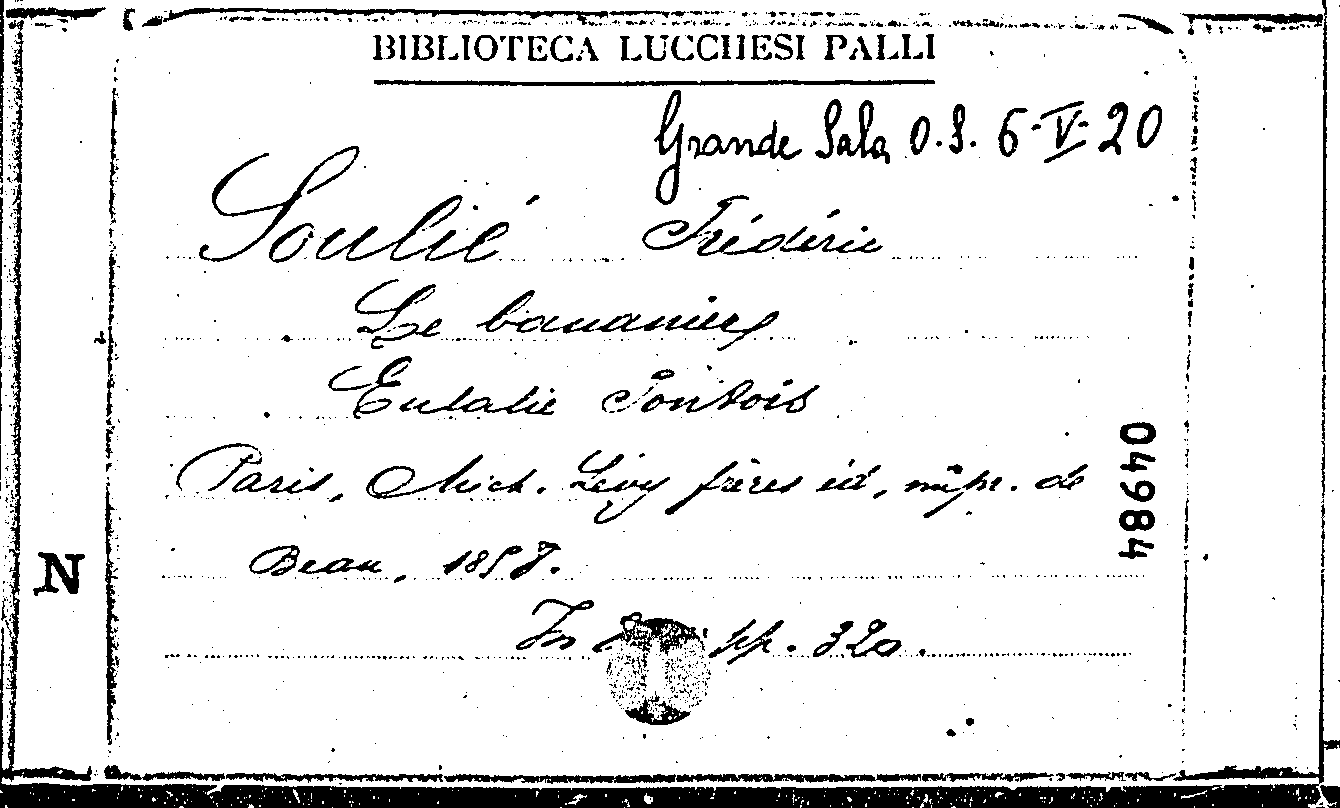 BIBLIOTECA LUCCHESI PALLI
Grande Sala O.S. 6-V-20
Soulié Frédéric
Le bananier
Eulalie Pontois
Paris, Mich. Lévy frères éd, impr. de
Beau, 1857.
In pp. 320.
04984
N